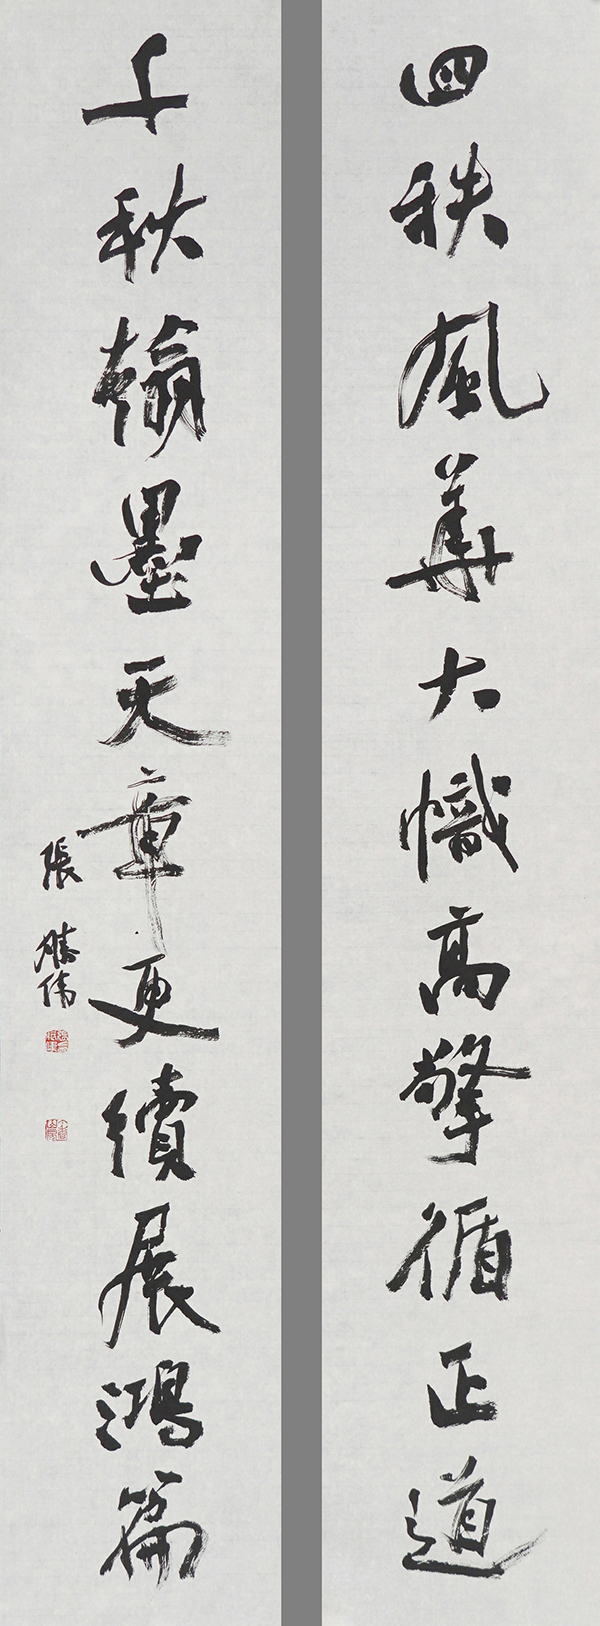 四秩風華大幟高擎循正道
千秋翰墨天章更續展鴻篇
張勝偉